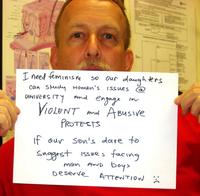 I need feminism so our daughters
can study women's issues @
university and engage in
VIOLENT and ABUSIVE
PROTESTS
if our son's dare to
suggest issues facing
men and boys
DESERVE ATTENTION